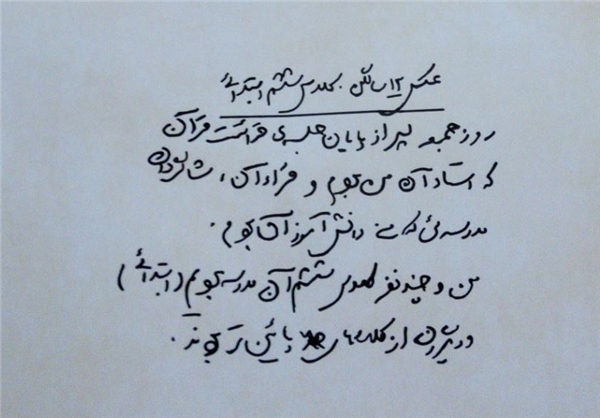 عکس ۱۲ سالگی. کلاس ششم ابتدائی
روز جمعه پس از پایان جلسه‌ی قرائت قرآن
که استاد آن من بودم و قراء آن، شاگردان
مدرسه‌ئی که من دانش آموز آن بودم.
من و چند نفر کلاس ششم آن مدرسه بودیم (ابتدائی)
و دیگران از کلاسهای پائین تر بودند.